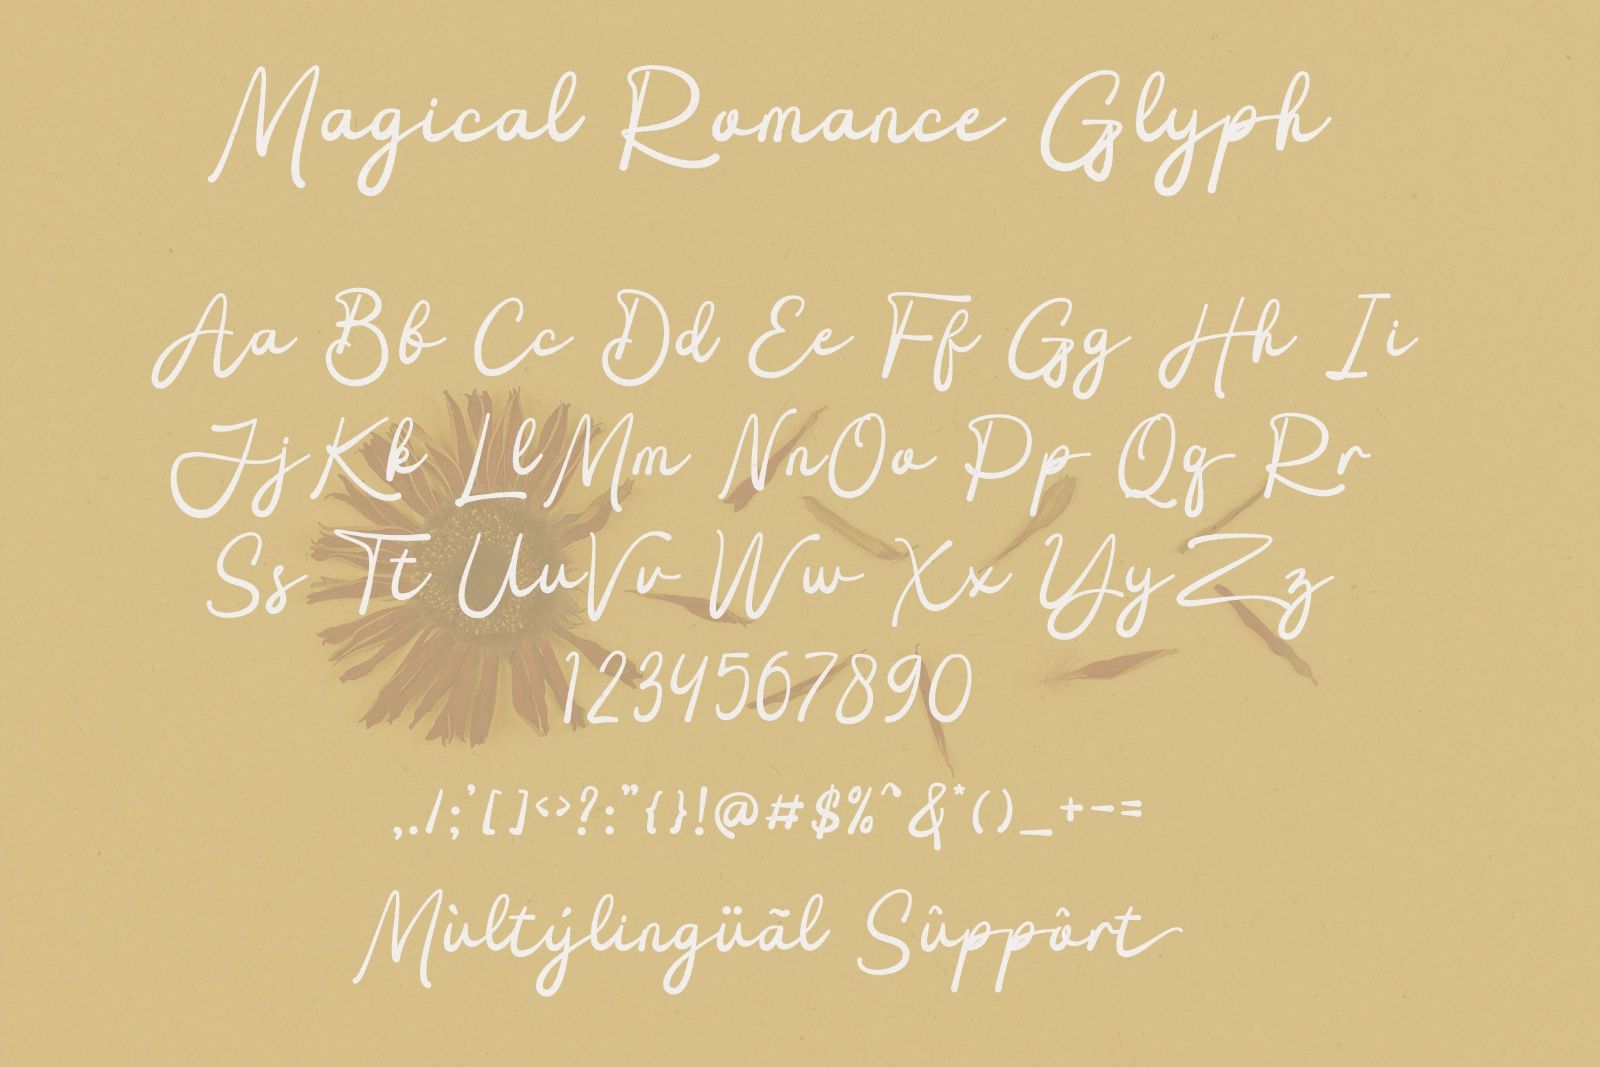 Magical Romance Glyph
Aa Bb Cc Dd Ee Ff Gg Hh Ii
Jj Kk Ll Mm Nn Oo Pp Qq Rr
Ss Tt Uu Vv Ww Xx Yy Zz
1234567890
,./;'[]<>?:"{}!@#$%^&*()_+-=
Mùltýlingüãl Sûppôrt